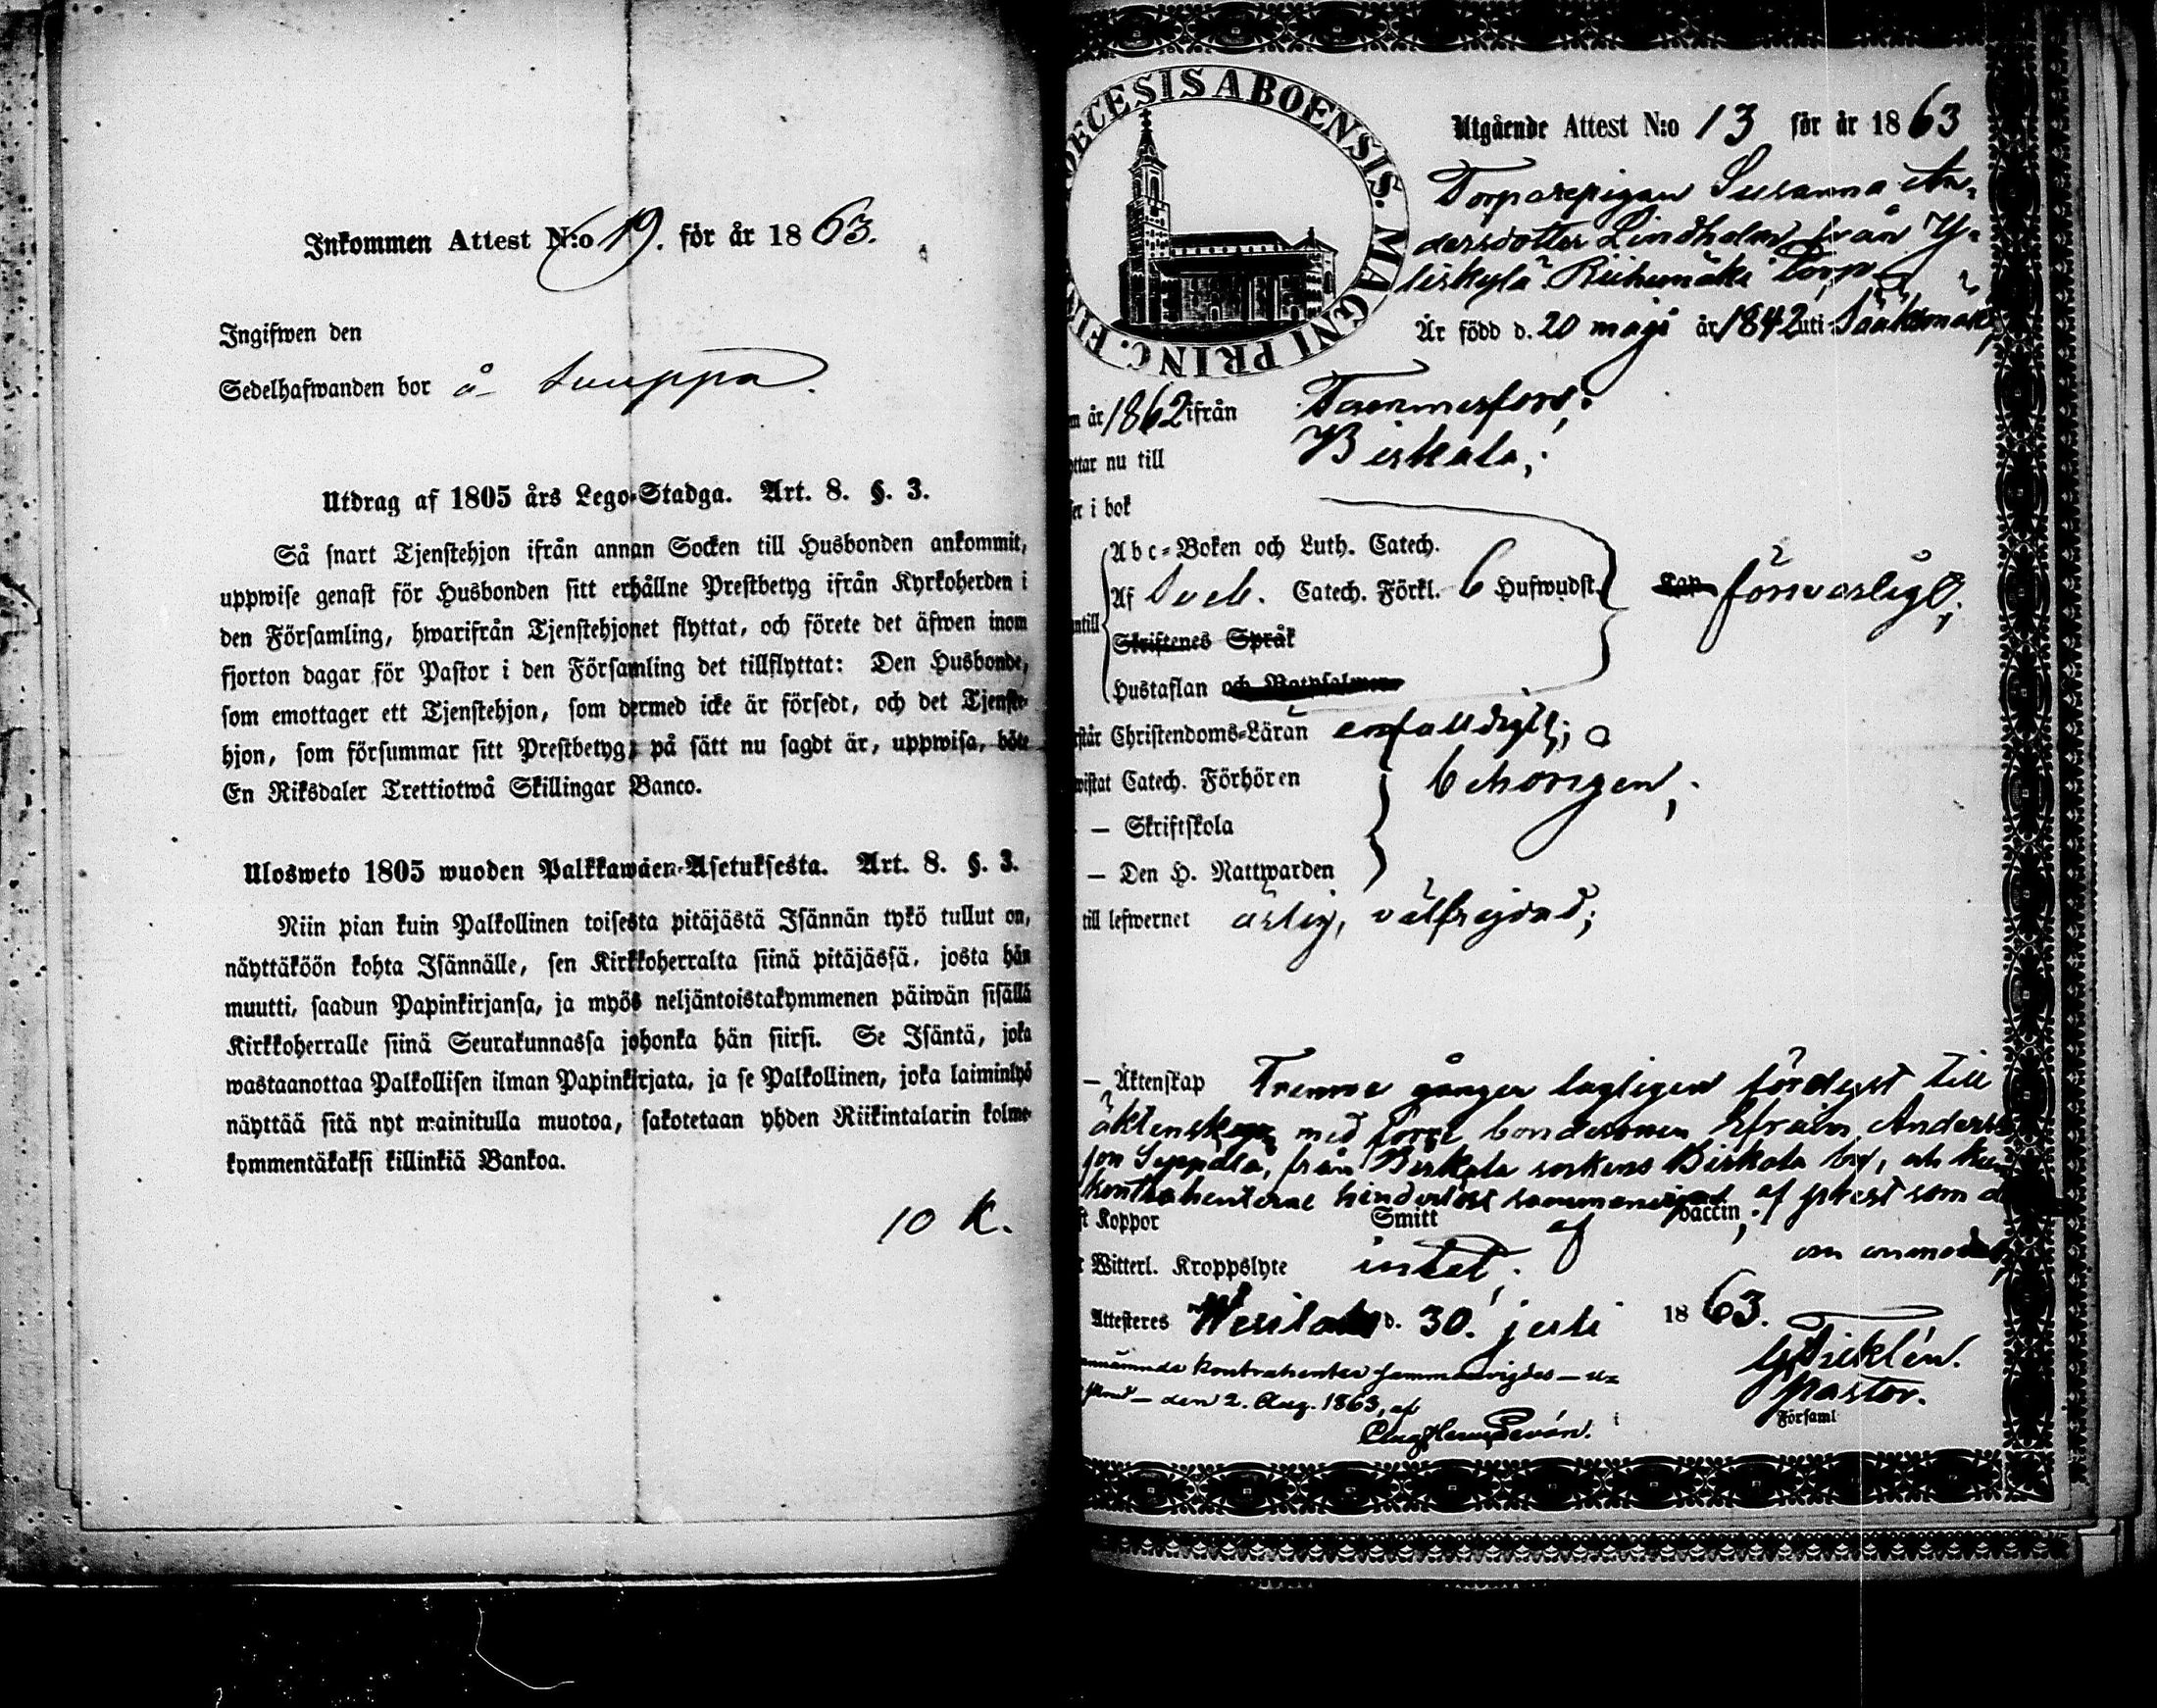 Inkommen Attest N:o 19. för år 1863.
Ingifwen den
Sedelhafwanden bor å
Utdrag af 1805 års Lego-Stadga. Art. 8. §. 3.
Så snart Tjenstehjon ifrån annan Socken till Husbonden ankommit,
uppwise genast för Husbonden sitt erhållne Prestbetyg ifrån Kyrkoherden i
den Församling, hwarifrån Tjenstehjonet flyttat, och förete det äfwen inom
fjorton dagar för Pastor i den Församling det tillflyttat: Den Husbonde,
som emottager ett Tjenstehjon, som dermed icke är försedt, och det Tjenste-
hjon, som försummar sitt Prestbetyg, på sätt nu sagdt är, uppwisa, böte
En Riksdaler Trettiotwå Skillingar Banco.
Ulosweto 1805 wuoden Palkkawäen-Asetuksesta. Art. 8. §. 3.
Niin pian kuin Palkollinen toisesta pitäjästä Isännän tykö tullut on,
näyttäköön kohta Isännälle, sen Kirkkoherralta siinä pitäjässä, josta hän
muutti, saadun Papinkirjansa, ja myös neljäntoistakymmenen päiwän sisällä
Kirkkoherralle siinä Seurakunnassa johonka hän siirsi. Se Isäntä, joka
wastaanottaa Palkollisen ilman Papinkirjata, ja se Palkollinen, joka laiminlyö
näyttää sitä nyt mainitulla muotoa, sakotetaan yhden Riikintalarin kolme-
kymmentäkaksi killinkiä Bankoa.
10 K.
DECESIS ABOENSIS. MAGNI PRINC. FIN
Utgående Attest N:o 13 för år 1863
Torparepigan Susanna An-
dersdotter Lindholm från Y-
liskylä Riihimäki Torp
Är född d. 20 maji år 1842 uti Sääksmäki,
år 1862 ifrån Tammerfors;
nu till Birkala;
i bok
Abc-Boken och Luth. Catech.
Af Catech. Förkl. 6 Hufwudst. försvarligt;
Skriftenes Språk
Hustaflan och
Christendoms-Läran enfaldigt;
Catech. Förhören behörigen;
— Skriftskola
— Den H. Nattwarden
till lefwernet ärlig, välfrejdad;
— Äktenskap Trenne gånger lagligen för till
äktenskap med bondesonen Efraim Anders
son Seppälä, från Birkala sockens Birkala by, och kun
kontrahenterne hinderlöst af prest som d
om anmodas,
Koppor Smitt af Vaccin,
Witterl. Kroppslyte intet;
Attesteres d. 30. juli 1863.
kontrahenter sammanvigdes —
— den 2. Aug. 1863, af
Pastor.
Församl